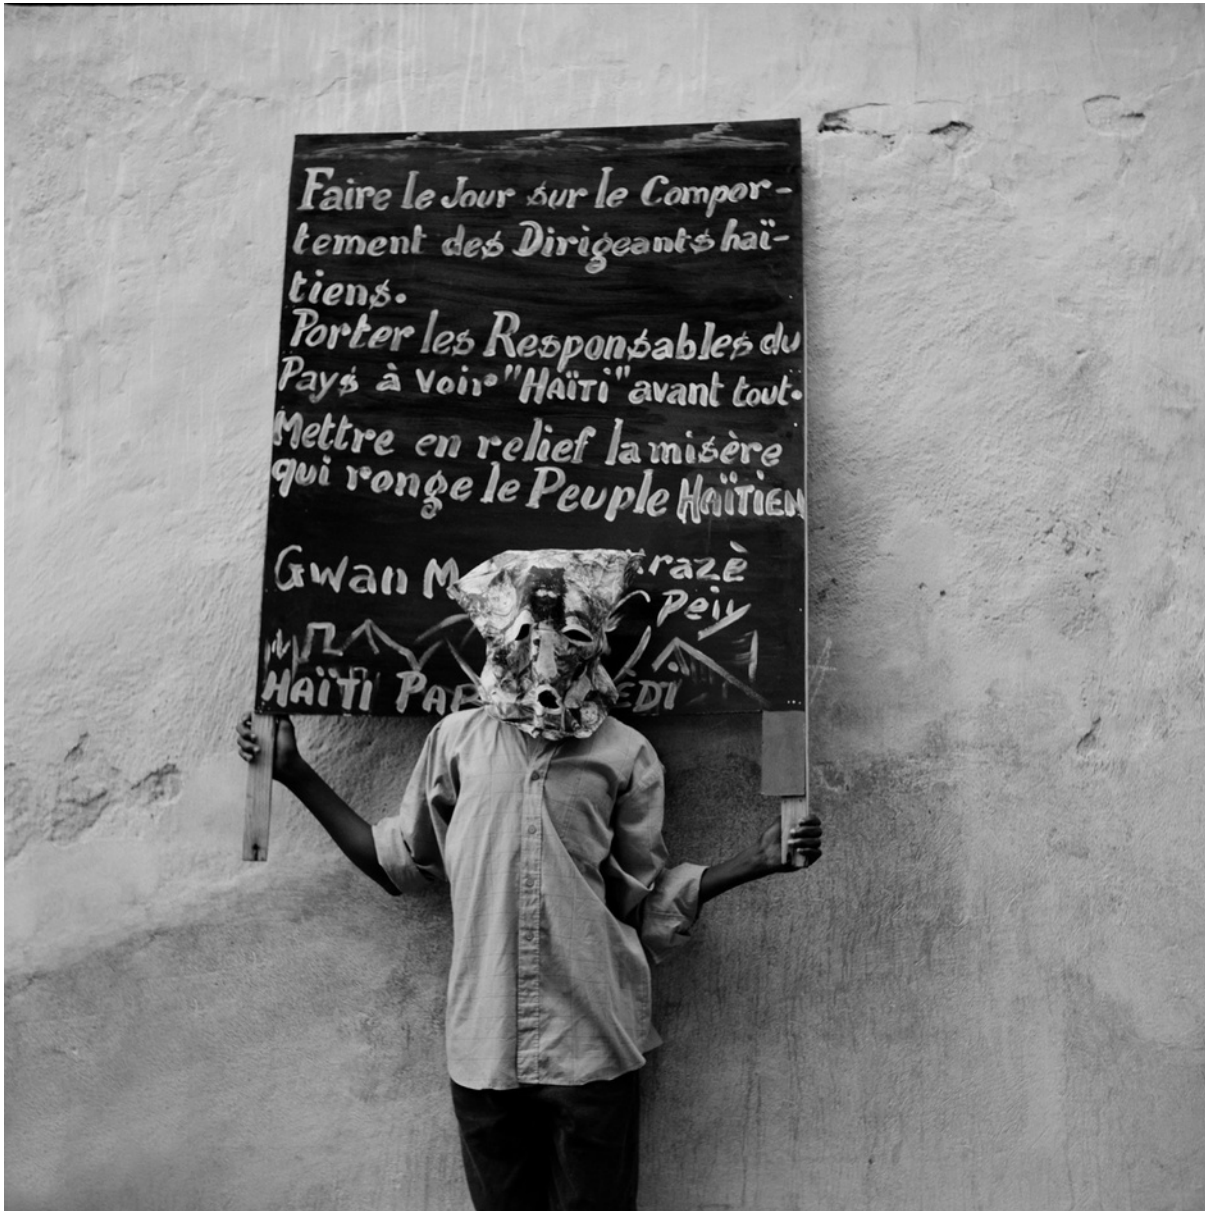 Faire le Jour sur le Compor-
tement des Dirigeants haï-
tiens.
Porter les Responsables du
Pays à voir "HAÏTI" avant tout.
Mettre en relief la misère
qui ronge le Peuple HAÏTIEN
Gwan M razè
Peiy
HAÏTI PA ÈDI